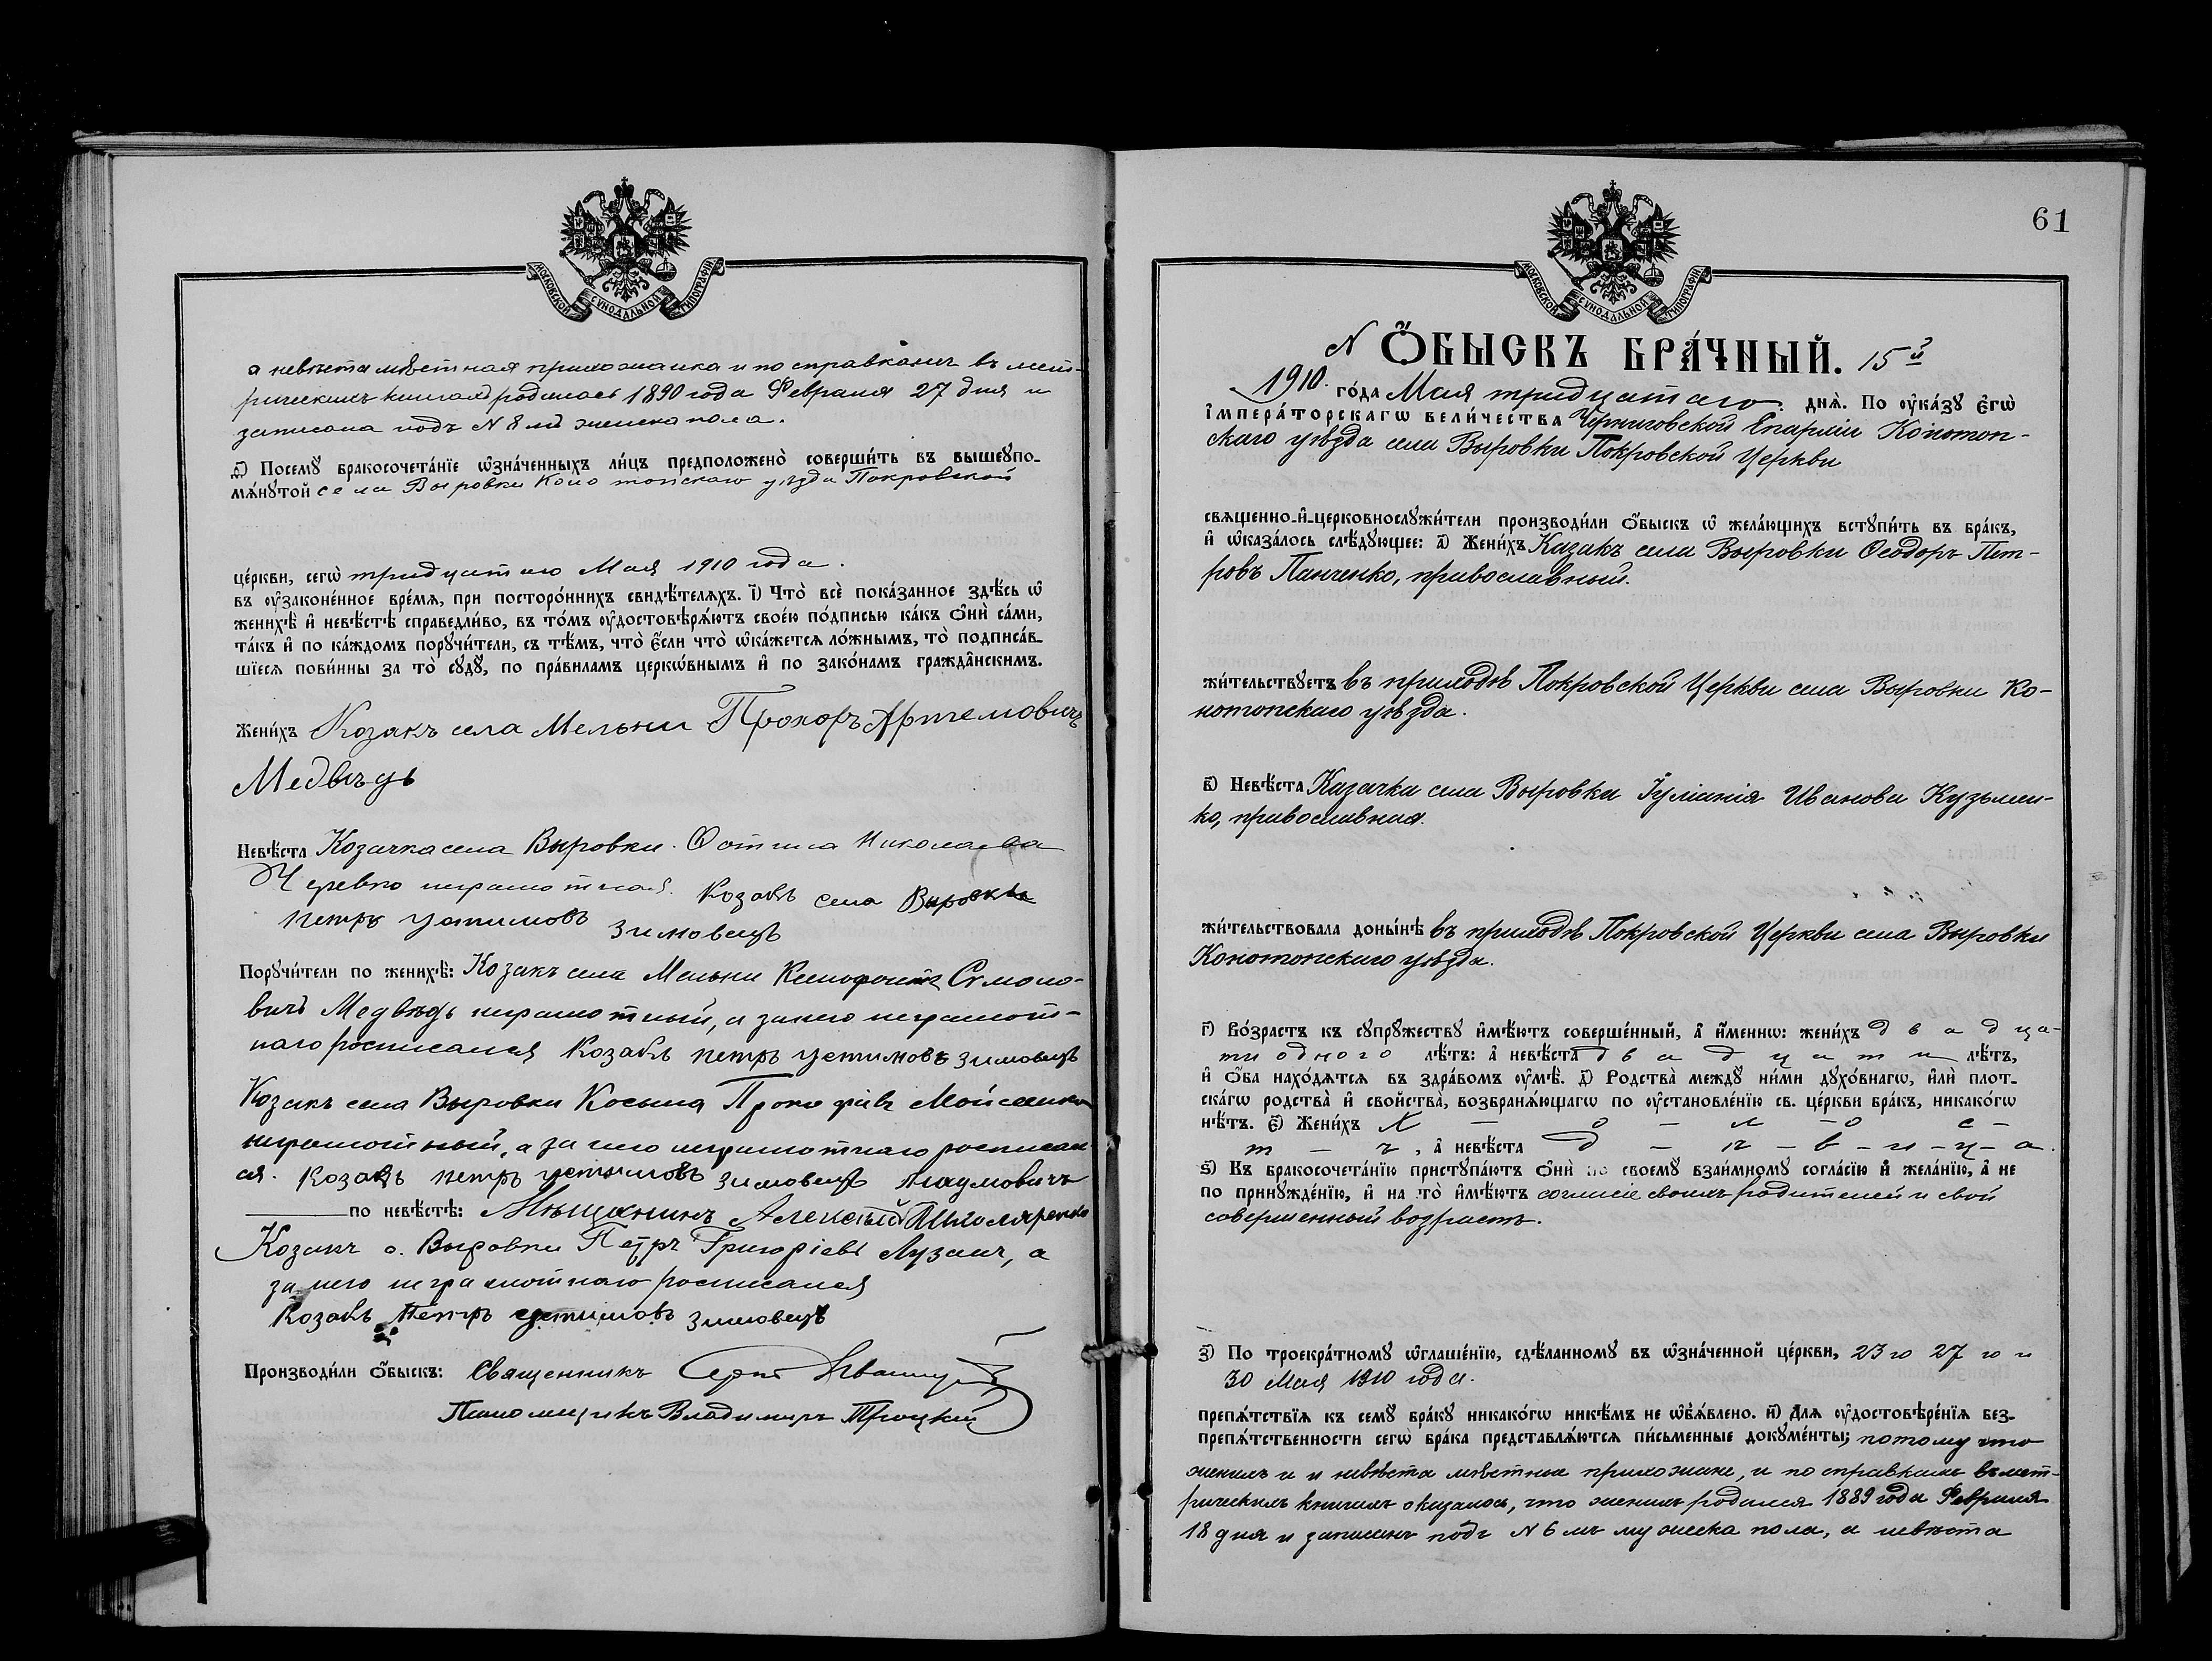 МОСКОВСКОЙ СУНОДАЛЬНОЙ ТИПОГРАФІИ
а невѣста мѣстная прихожанка и по справкамъ въ мет-
рическихъ книгахъ родилась 1890 года Февраля 27 дня и
записана подъ N 8 мъ женска пола.
д҃і) Посемꙋ̀ бракосочета́нїе ѡ҆зна́ченныхъ ли́цъ предположено̀ соверши́ть въ вышеꙋпо-
мѧ́нꙋтой села Выровки Конотопскаго уѣзда Покровской
це́ркви, сегѡ̀ тридцатаго Мая 1910 года.
въ ᲂу҆законе́нное вре́мѧ, при посторо́ннихъ свидѣ́телѧхъ. і҃) Что̀ всѐ пока́занное здѣ́сь ѡ҆
женихѣ̀ и҆ невѣ́стѣ справедли́во, въ то́мъ ᲂу҆достовѣрѧ́ютъ свое́ю по́дписью ка́къ ѻ҆нѝ са́ми,
та́къ и҆ по ка́ждомъ порꙋчи́тели, съ тѣ́мъ, что̀ є҆́сли что̀ ѡ҆ка́жетсѧ ло́жнымъ, то̀ подписа́в-
шїесѧ пови́нны за то̀ сꙋдꙋ̀, по пра́виламъ церкѡ́внымъ и҆ по зако́намъ гражда̑нскимъ.
Жени́хъ Козакъ села Мельни Прохоръ Артемовичъ
Медвѣдь
Невѣ́ста Козачка села Выровки Фотина Николаева
Черевко неграмотная. Козакъ села Выровки
петръ устимовъ зимовецъ
Порꙋчи́тели по женихѣ̀: Козакъ села Мельни Ксенофонтъ Симоно-
вичъ Медвѣдь неграмотный, а за него неграмот-
наго росписался Козакъ петръ устимовъ зимовецъ
Козакъ села Выровки Косьма Прокофіевъ Мойсеенко
неграмотный, а за него неграмотнаго росписал
ся. Козакъ петръ устимовъ зимовецъ Наумовичъ
по невѣ́стѣ: Мѣщанинъ Алексѣй Школяренко
Козакъ с. Выровки Петръ Григоріевъ Лузанъ, а
за него неграмотнаго росписался
Козакъ Петръ устимовъ зимовецъ
Производи́ли ѻ҆́быскъ: Священникъ
Псаломщикъ Владимиръ Троцкій
61
МОСКОВСКОЙ СУНОДАЛЬНОЙ ТИПОГРАФІИ
N Ѻ҆́БЫСКЪ БРА́ЧНЫЙ. 15й
1910. го́да Мая тридцатаго. днѧ̀. По ᲂу҆ка́зꙋ є҆гѡ̀
і҆мпера́торскагѡ вели́чества Черниговской Епархіи Конотоп-
скаго уѣзда села Выровки Покровской Церкви
свѧщенно-и҆-церковнослꙋжи́тели производи́ли ѻ҆́быскъ ѡ҆ жела́ющихъ встꙋпи́ть въ бра́къ,
и҆ ѡ҆каза́лось слѣ́дꙋющее: а҃) Жени́хъ Казакъ села Выровки Ѳеодоръ Пет-
ровъ Панченко, православный.
жи́тельствꙋетъ въ приходѣ Покровской Церкви села Выровки Ко-
нотопскаго уѣзда.
в҃) Невѣ́ста Казачка села Выровки Іуліанія Иванова Кузьмен-
ко, православная.
жи́тельствовала доны́нѣ въ приходѣ Покровской Церкви села Выровки
Конотопскаго уѣзда.
г҃) Во́зрастъ къ сꙋпрꙋ́жествꙋ и҆мѣ́ютъ соверше́нный, а҆ и҆́меннѡ: жени́хъ двадца-
ти одного лѣ́тъ: а҆ невѣ́ста двадцати лѣ́тъ,
и҆ ѻ҆́ба нахо́дѧтсѧ въ здра́вомъ ᲂу҆мѣ̀. д҃) Родства̀ междꙋ̀ ни́ми дꙋхо́внагѡ, и҆лѝ плот-
ска́гѡ родства̀ и҆ свойства̀, возбранѧ́ющагѡ по ᲂу҆становле́нїю св. це́ркви бра́къ, никако́гѡ
нѣ́тъ. є҃) Жени́хъ х – о – л – о – с –
т – ъ, а҆ невѣ́ста д – ѣ – в – и – ц – а.
ѕ҃) Къ бракосочета́нїю пристꙋпа́ютъ ѻ҆нѝ по своемꙋ̀ взаи́мномꙋ согла́сїю и҆ жела́нїю, а҆ не
по принꙋжде́нїю, и҆ на то̀ и҆мѣ́ютъ согласіе своихъ родителей и свой
совершенный возрастъ.
з҃) По троекра́тномꙋ ѡ҆глаше́нїю, сдѣ́ланномꙋ въ ѡ҆зна́ченной це́ркви, 23 го 27 го и
30 Мая 1910 года.
препѧ́тствїѧ къ семꙋ̀ бра́кꙋ никако́гѡ никѣ́мъ не ѡ҆б̾ѧ́влено. и҃) Длѧ ᲂу҆достовѣре́нїѧ без-
препѧ́тственности сегѡ̀ бра́ка представлѧ́ютсѧ пи́сьменные докꙋме́нты; потому что
женихъ и и невѣста мѣстные прихожане, и по справкамъ въ мет-
рическихъ книгахъ оказалось, что женихъ родился 1889 года Февраля
18 дня и записанъ подъ N 6 мъ мужеска пола, а невѣста